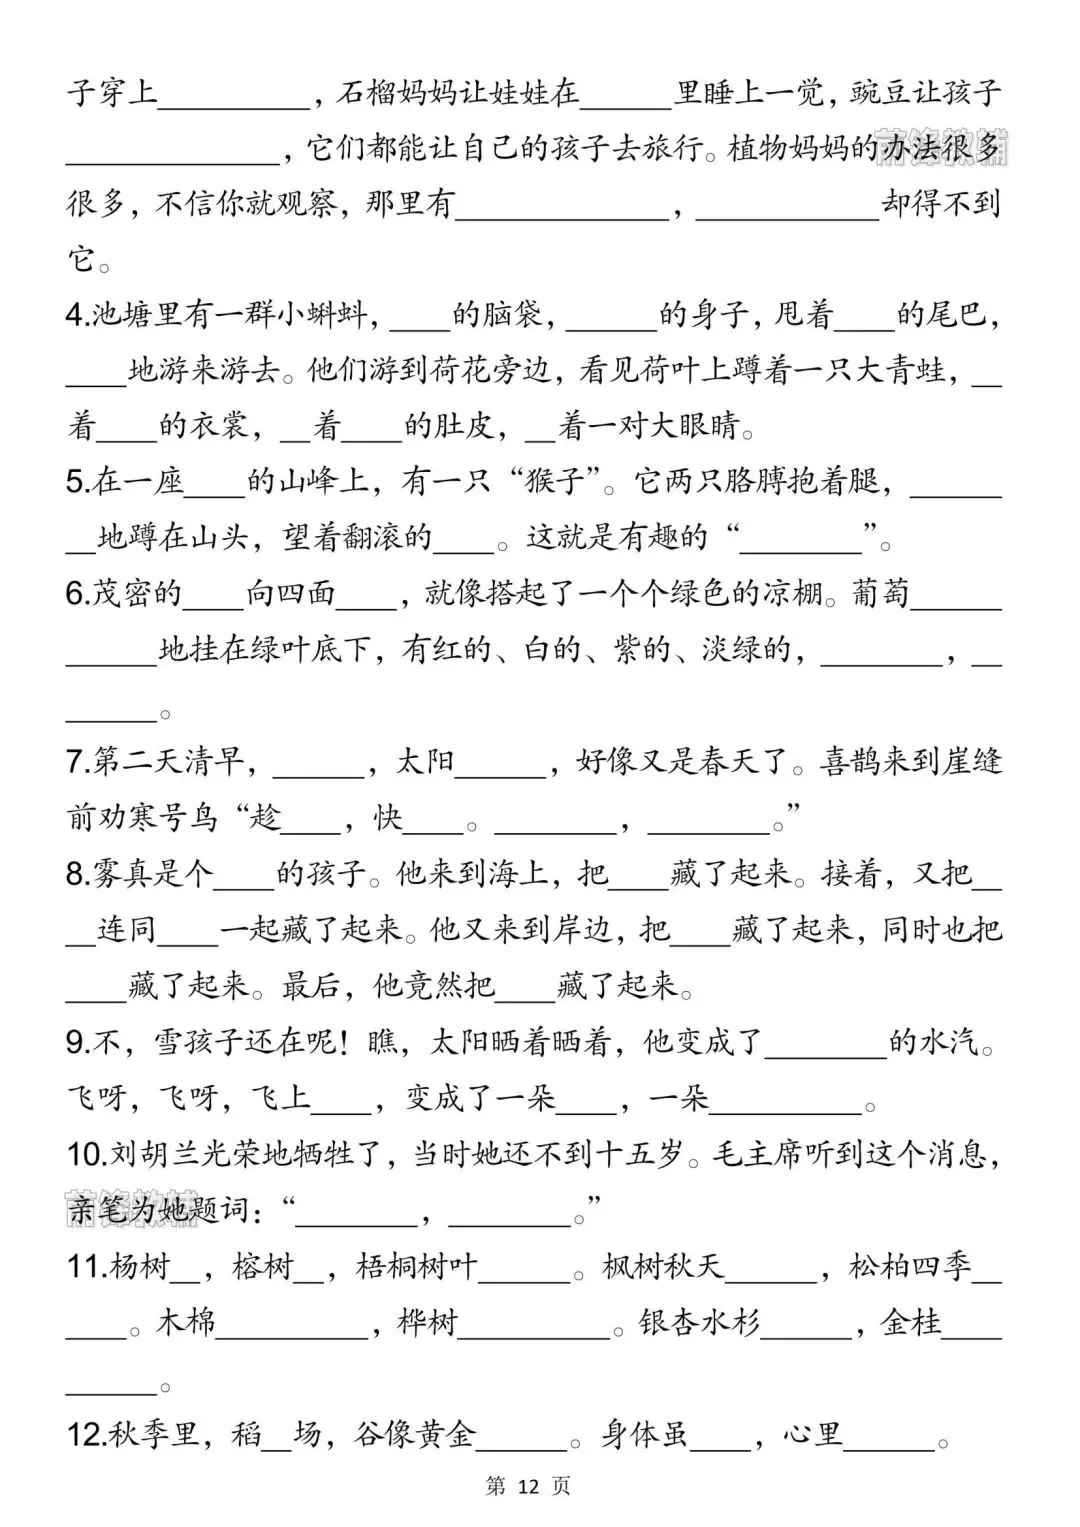 子穿上__________，石榴妈妈让娃娃在______里睡上一觉，豌豆让孩子
______________，它们都能让自己的孩子去旅行。植物妈妈的办法很多
很多，不信你就观察，那里有______________，____________却得不到
它。
4.池塘里有一群小蝌蚪，____的脑袋，______的身子，甩着____的尾巴，
____地游来游去。他们游到荷花旁边，看见荷叶上蹲着一只大青蛙，__
着____的衣裳，__着____的肚皮，__着一对大眼睛。
5.在一座____的山峰上，有一只“猴子”。它两只胳膊抱着腿，______
__地蹲在山头，望着翻滚的____。这就是有趣的“________”。
6.茂密的____向四面____，就像搭起了一个个绿色的凉棚。葡萄______
______地挂在绿叶底下，有红的、白的、紫的、淡绿的，________，__
______。
7.第二天清早，______，太阳______，好像又是春天了。喜鹊来到崖缝
前劝寒号鸟“趁____，快____。________，________。”
8.雾真是个____的孩子。他来到海上，把____藏了起来。接着，又把__
__连同____一起藏了起来。他又来到岸边，把____藏了起来，同时也把
____藏了起来。最后，他竟然把____藏了起来。
9.不，雪孩子还在呢！瞧，太阳晒着晒着，他变成了________的水汽。
飞呀，飞呀，飞上____，变成了一朵____，一朵__________。
10.刘胡兰光荣地牺牲了，当时她还不到十五岁。毛主席听到这个消息，
亲笔为她题词：“________，________。”
11.杨树__，榕树__，梧桐树叶______。枫树秋天______，松柏四季__
____。木棉__________，桦树__________。银杏水杉______，金桂____
______。
12.秋季里，稻__场，谷像黄金______。身体虽____，心里______。
第 12 页
前锋教辅
前锋教辅